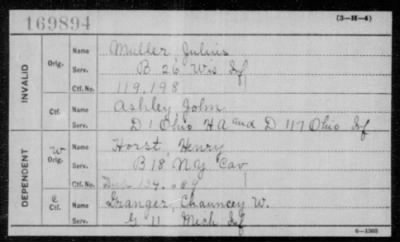 169894
(3-H-4)
INVALID
Orig.
Name Muller Julius
Serv. B 26 Wis Inf
Ctf. No. 119,198
Ctf.
Name Ashley John
Serv. D 1 Ohio H A and D 117 Ohio Inf
DEPENDENT
W
Orig.
Name Horst, Henry
Serv. B 18 N.Y. Cav
Ctf. No. Dup 134.089
C
Ctf.
Name Granger, Chauncey W.
Serv. G 11 Mich Inf